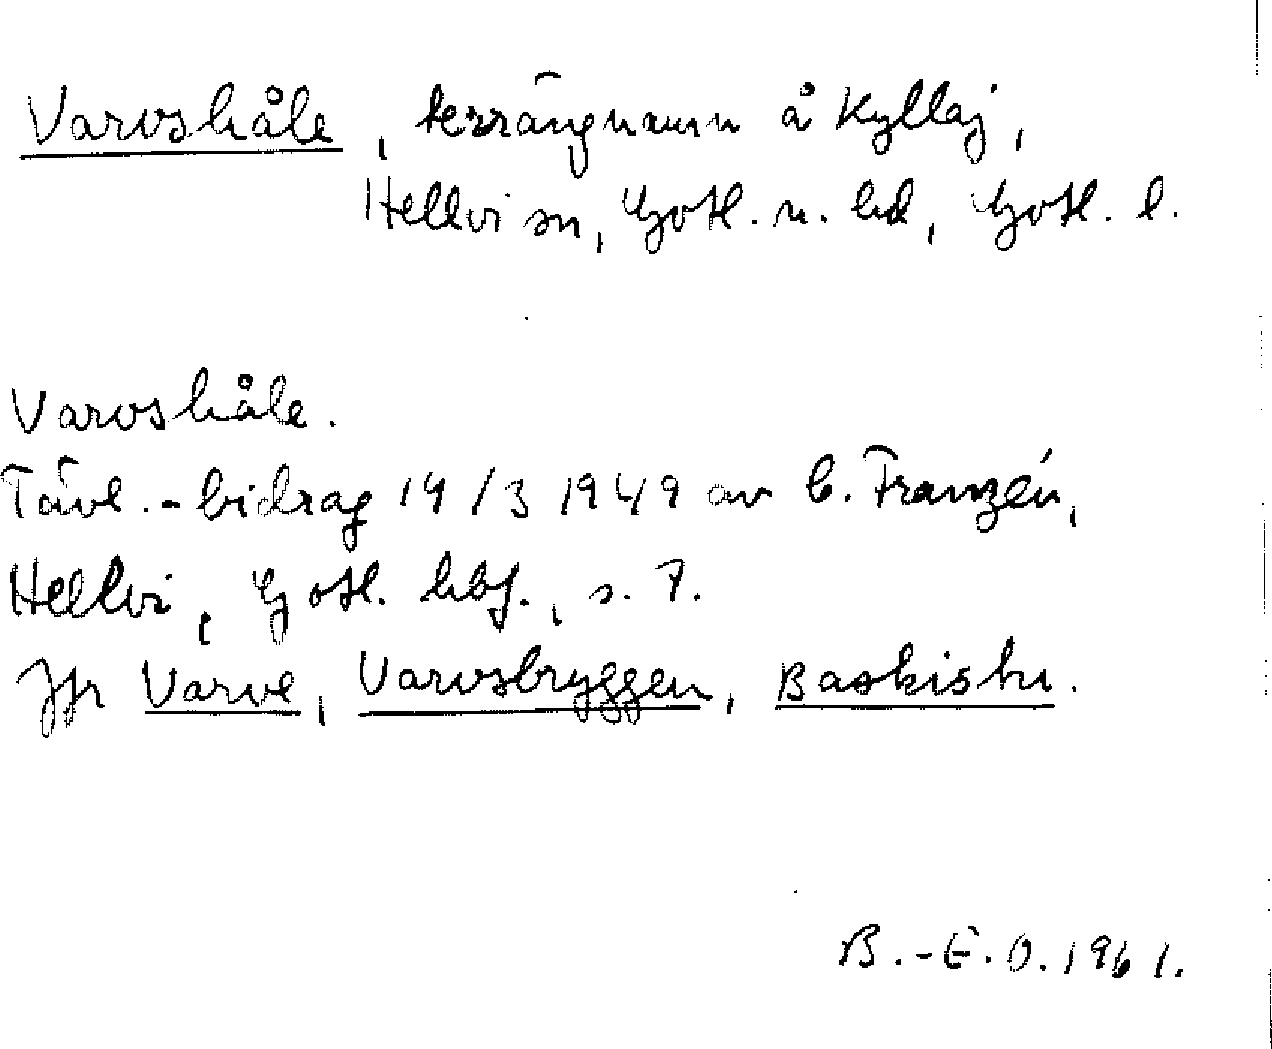 Varvshåle, terrängnamn å Kyllaj,
Hellvi sn, Gotl. n. hd, Gotl. l.
Varvshåle.
Tävl.-bidrag 14/3 1949 av C. Franzén,
Hellvi, Gotl. hbf., s. 7.
Jfr Varve, Varvsbryggen, Baskistu.
B.-E. O. 1961.